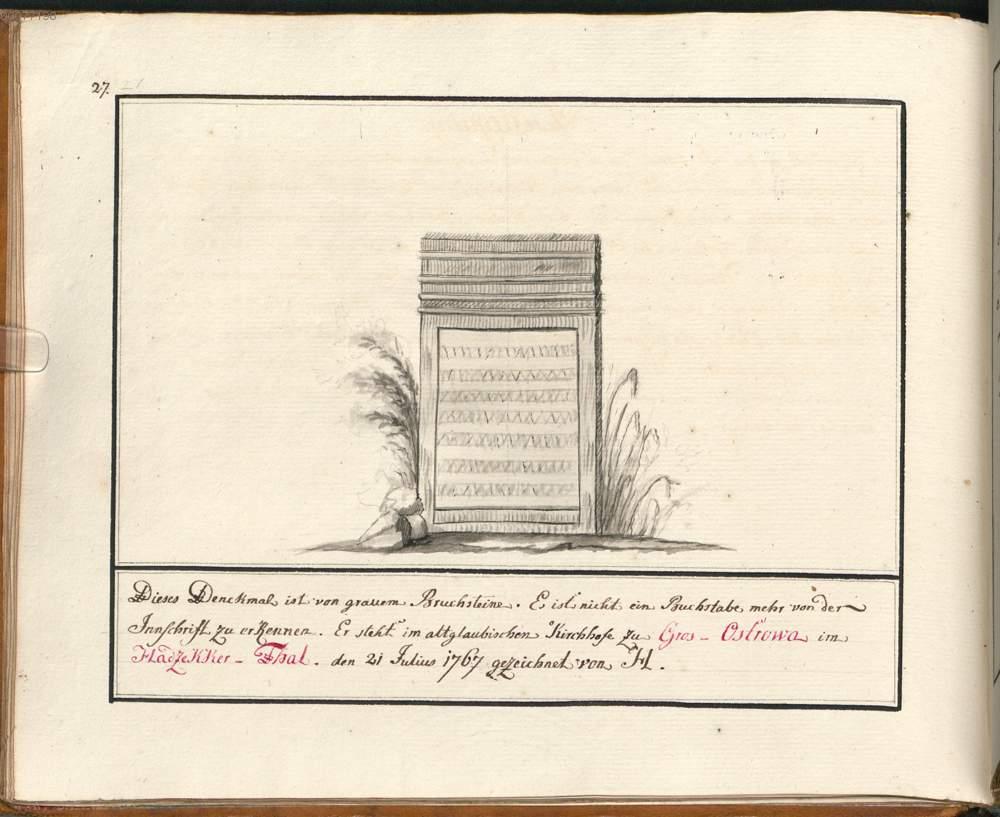 27.
Dieses Denckmal ist von grauem Bruchsteine. Es ist nicht ein Buchstabe mehr von der
Innschrift zu erkennen. Er steht im altglaubischen Kirchhofe zu Gros-Ostrowa im
HadzeKKer-Thal. den 21 Julius 1767 gezeichnet von H.